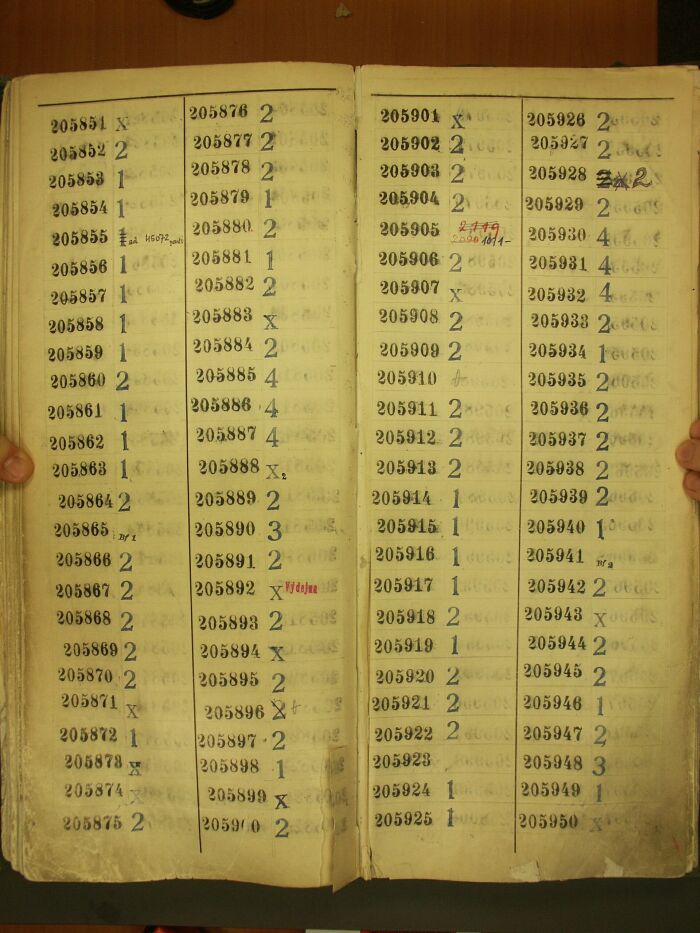 205851 x
205852 2
205853 1
205854 1
205855 1 45072
205856 1
205857 1
205858 1
205859 1
205860 2
205861 1
205862 1
205863 1
205864 2
205865
205866 2
205867 2
205868 2
205869 2
205870 2
205871 x
205872 1
205873 x
205874 x
205875 2
205876 2
205877 2
205878 2
205879 1
205880 2
205881 1
205882 2
205883 x
205884 2
205885 4
205886 4
205887 4
205888 x 2
205889 2
205890 3
205891 2
205892 x Výdejna
205893 2
205894 x
205895 2
205896 2
205897 2
205898 1
205899 x
205900 2
205901 x
205902 2
205903 2
205904 2
205905
205906 2
205907 x
205908 2
205909 2
205910
205911 2
205912 2
205913 2
205914 1
205915 1
205916 1
205917 1
205918 2
205919 1
205920 2
205921 2
205922 2
205923
205924 1
205925 1
205926 2
205927 2
205928 2
205929 2
205930 4
205931 4
205932 4
205933 2
205934 1
205935 2
205936 2
205937 2
205938 2
205939 2
205940 1
205941
205942 2
205943 x
205944 2
205945 2
205946 1
205947 2
205948 3
205949 1
205950 x